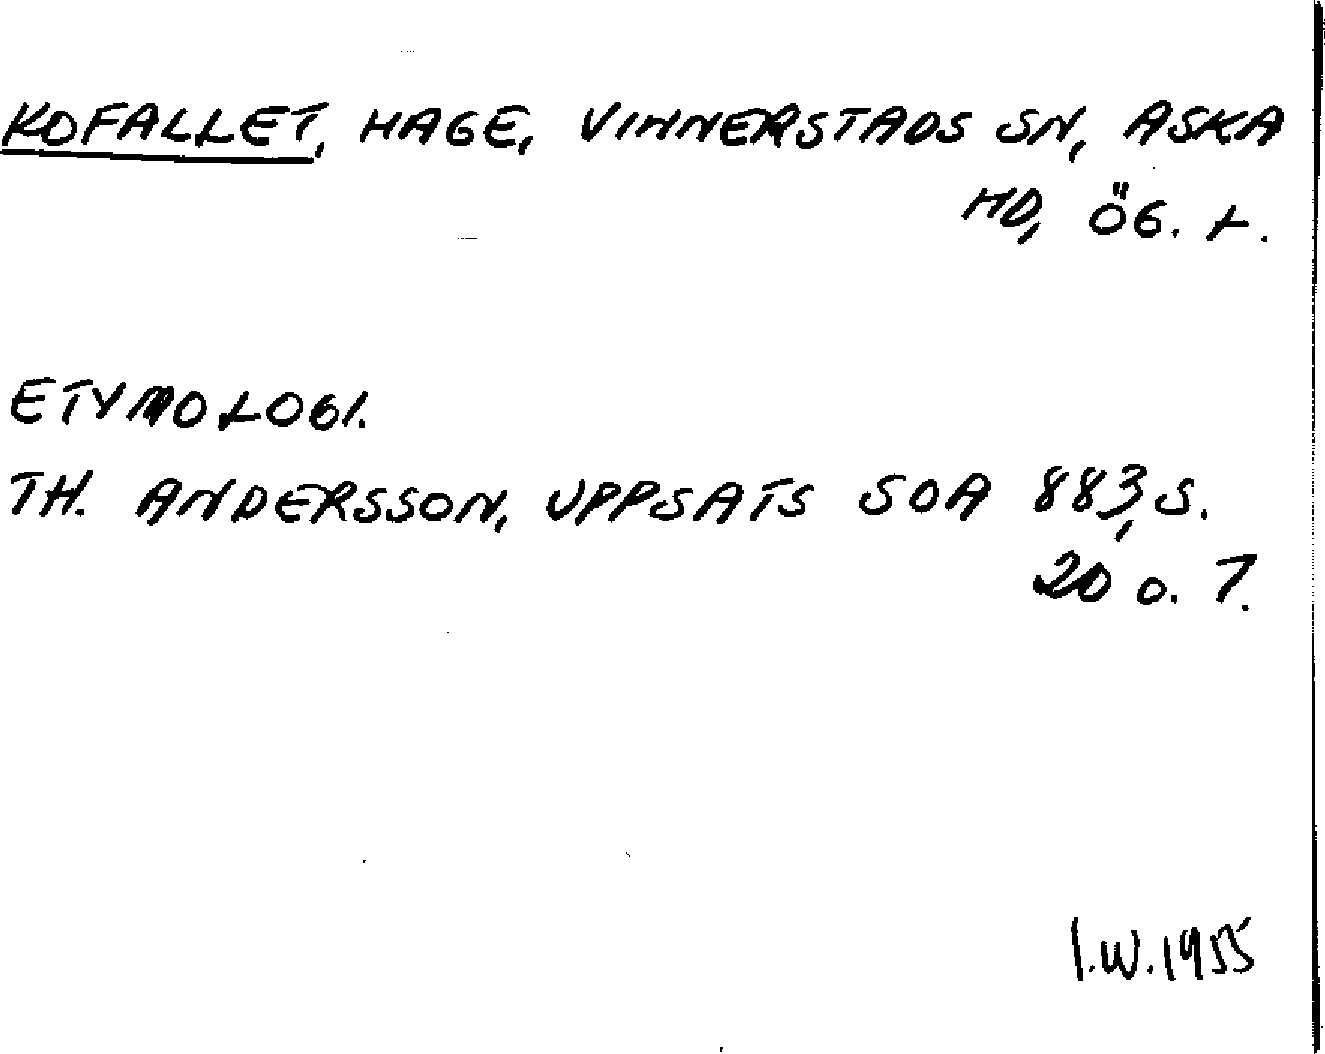 KOFALLET, HAGE, VINNERSTADS SN, ASKA
HD, ÖG. L.
ETYMOLOGI.
TH. ANDERSSON, UPPSATS SOA 883, S.
20 o. 7.
I.W. 1955